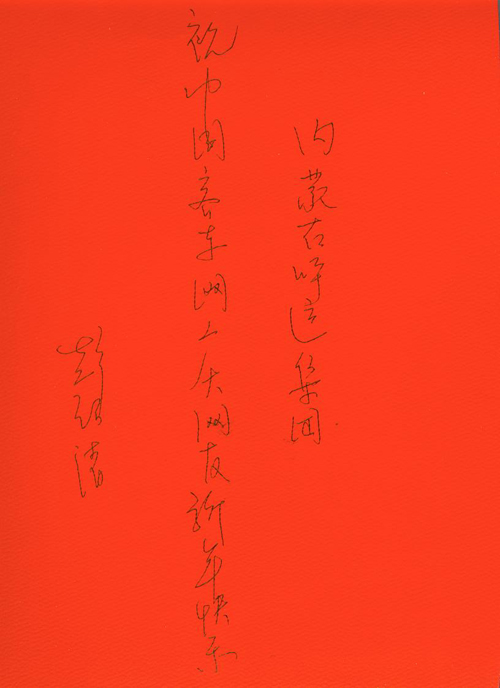 内蒙古呼运集团
祝中国客车网广大网友新年快乐
彭 清